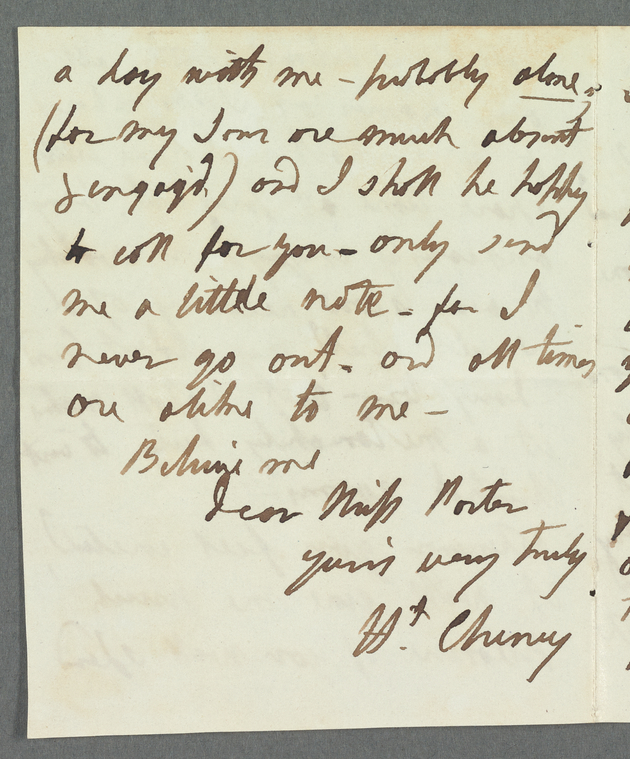 a day with me - probably alone,
(for my Sons are much absent
& engag'd.) and I shall be happy
to call for you - only send
me a little note - for I
never go out - and all times
are alike to me -
Believe me
dear Miss Porter
yours very truly
Ht. Cheney